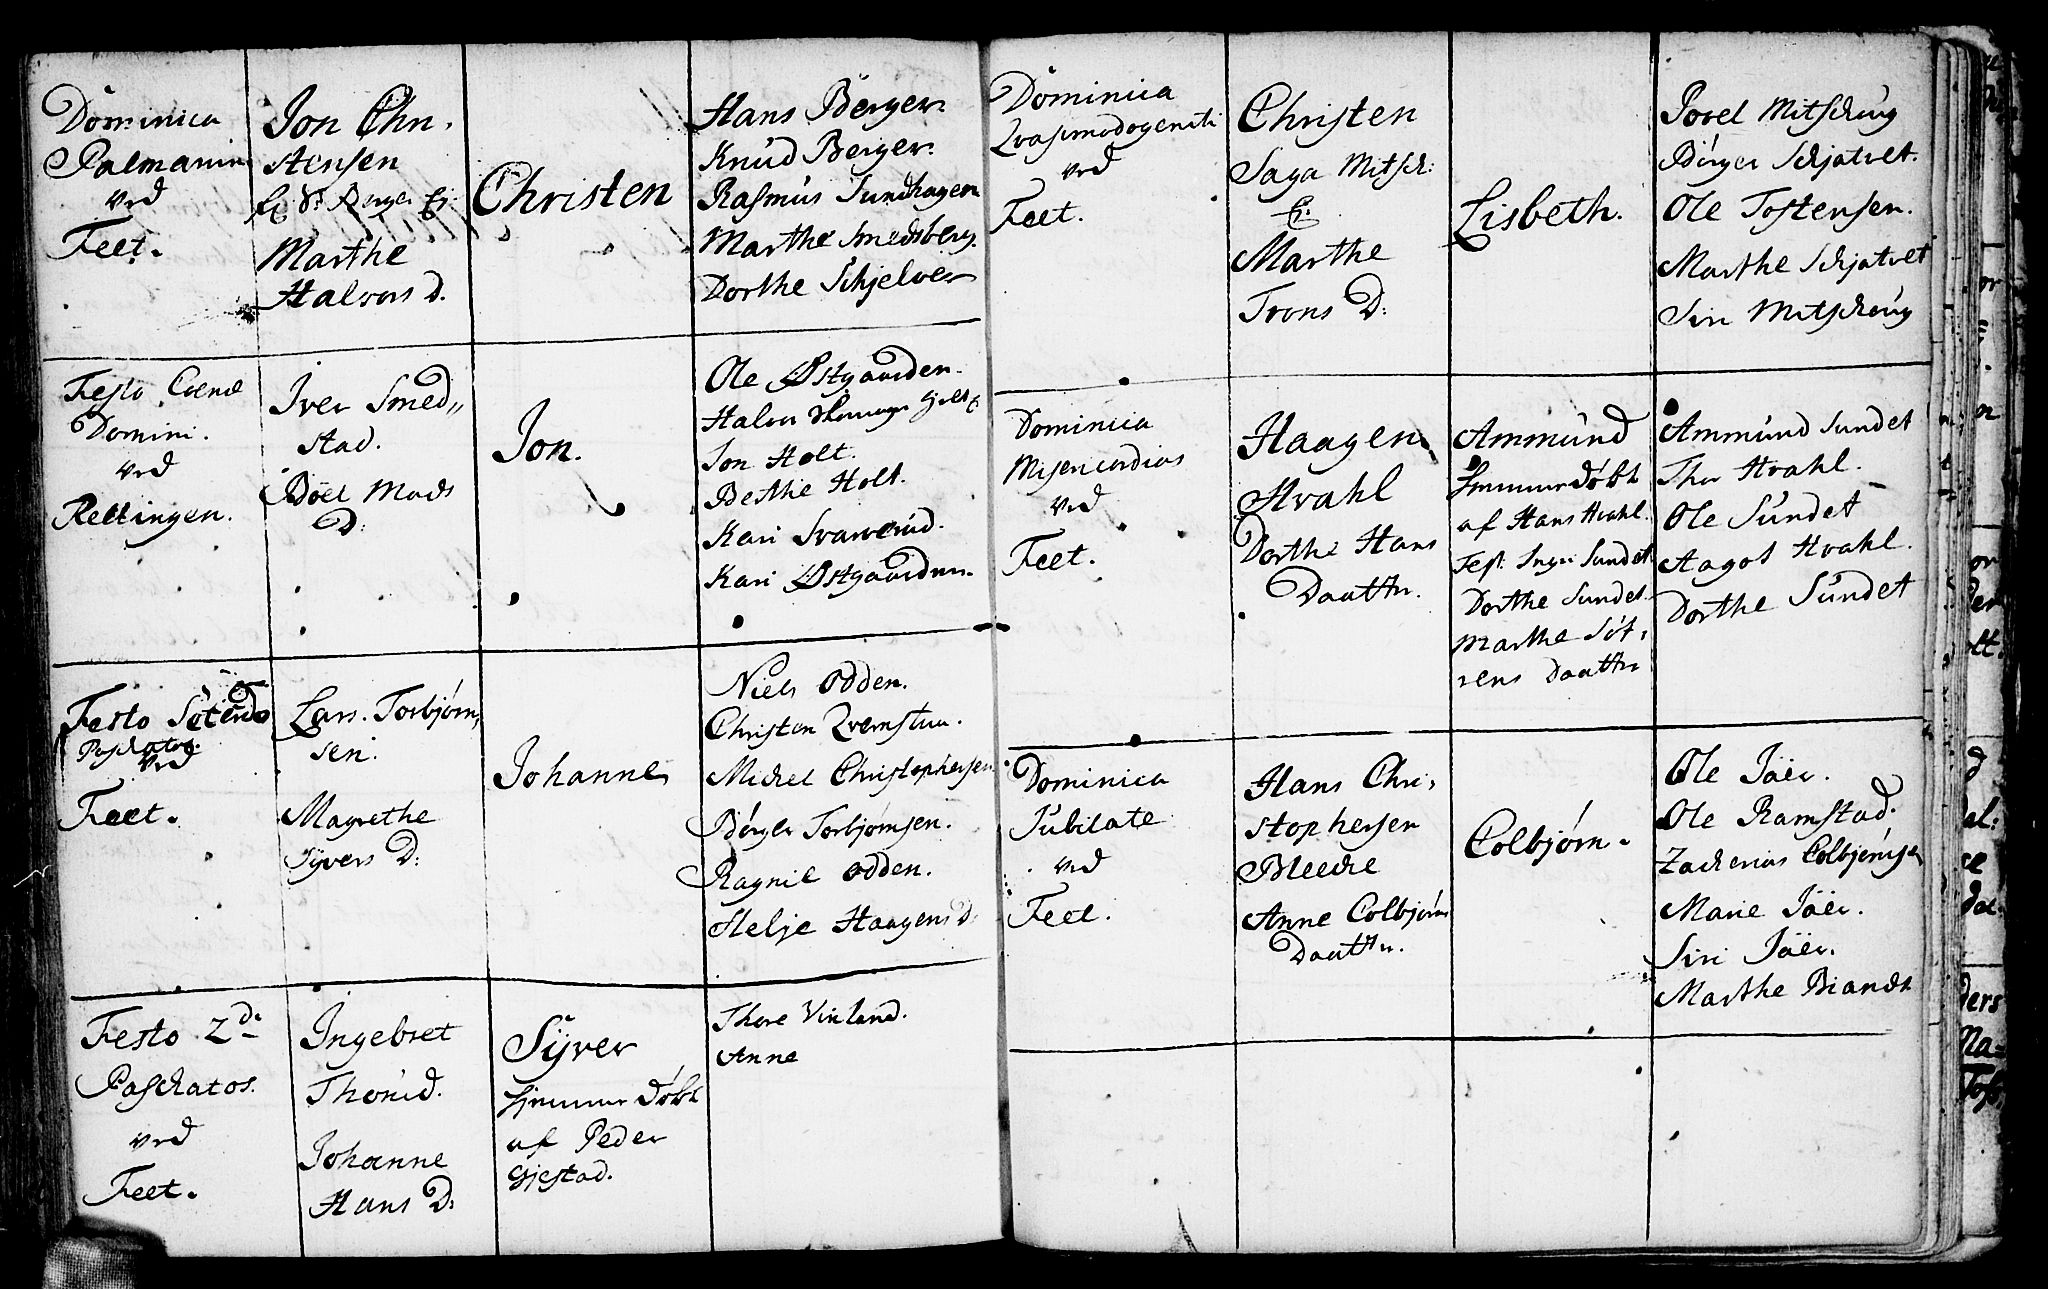 Dominica
Palmarum
ved
Feet.
Jon Chri-
stensen
Berger
Marthe
Halvors D.
Christen
Hans Berger.
Knud Berger.
Rasmus Sundhagen
Marthe Smedsberg.
Dorthe Schjelver
Festo Coenæ
Domini.
ved
Rellingen.
Iver Smed„
stad.
Böel Mads
D:
Jon.
Ole Østgaarden.
Halvor
Jon Holt.
Berthe Holt.
Kari Svarverud.
Kari Østgaarden.
Festo
Paschatos.
ved
Feet.
Lars Torbjørn,
sen.
Magrethe
Syvers D:
Johanne
Niels Odden.
Christen Qvernstuu.
Michel Christophersen
Börger Torbjørnsen.
Ragnil Odden.
Helje Haagens D:
Festo 2di
Paschatos.
ved
Feet.
Ingebret
Thorud.
Johanne
Hans D:
Syver
hjemme døbt
af Peder
Gjestad.
Thore Vinland.
Anne
Dominica
Qvasimodogeniti
ved
Feet.
Christen
Saga Mitsch:
E:
Marthe
Trons D:
Lisbeth.
Povel Mitscheug
Börger Schjatvet.
Ole Tostensen.
Marthe Schjatvet
Siri Mitscheug
Dominica
Misericordias
ved
Feet.
Haagen
Hvahl
Dorthe Hans
Daatter.
Ammund
hjemmedøbt
af Hans Hvahl.
Test. Inger Sundet
Dorthe Sundet.
Marthe Sö-
rens Daatter
Ammund Sundet
Thor Hvahl.
Ole Sundet
Aagot Hvahl.
Dorthe Sundet
Dominica
Jubilate
ved
Feet.
Hans Chri-
stophersen
Bleeche
Anne Colbjørns
Daatter.
Colbjørn.
Ole Jäer.
Ole Ramstad.
Zacherias Colbjørnse
Marie Jäer.
Siri Jäer.
Marthe Brandt